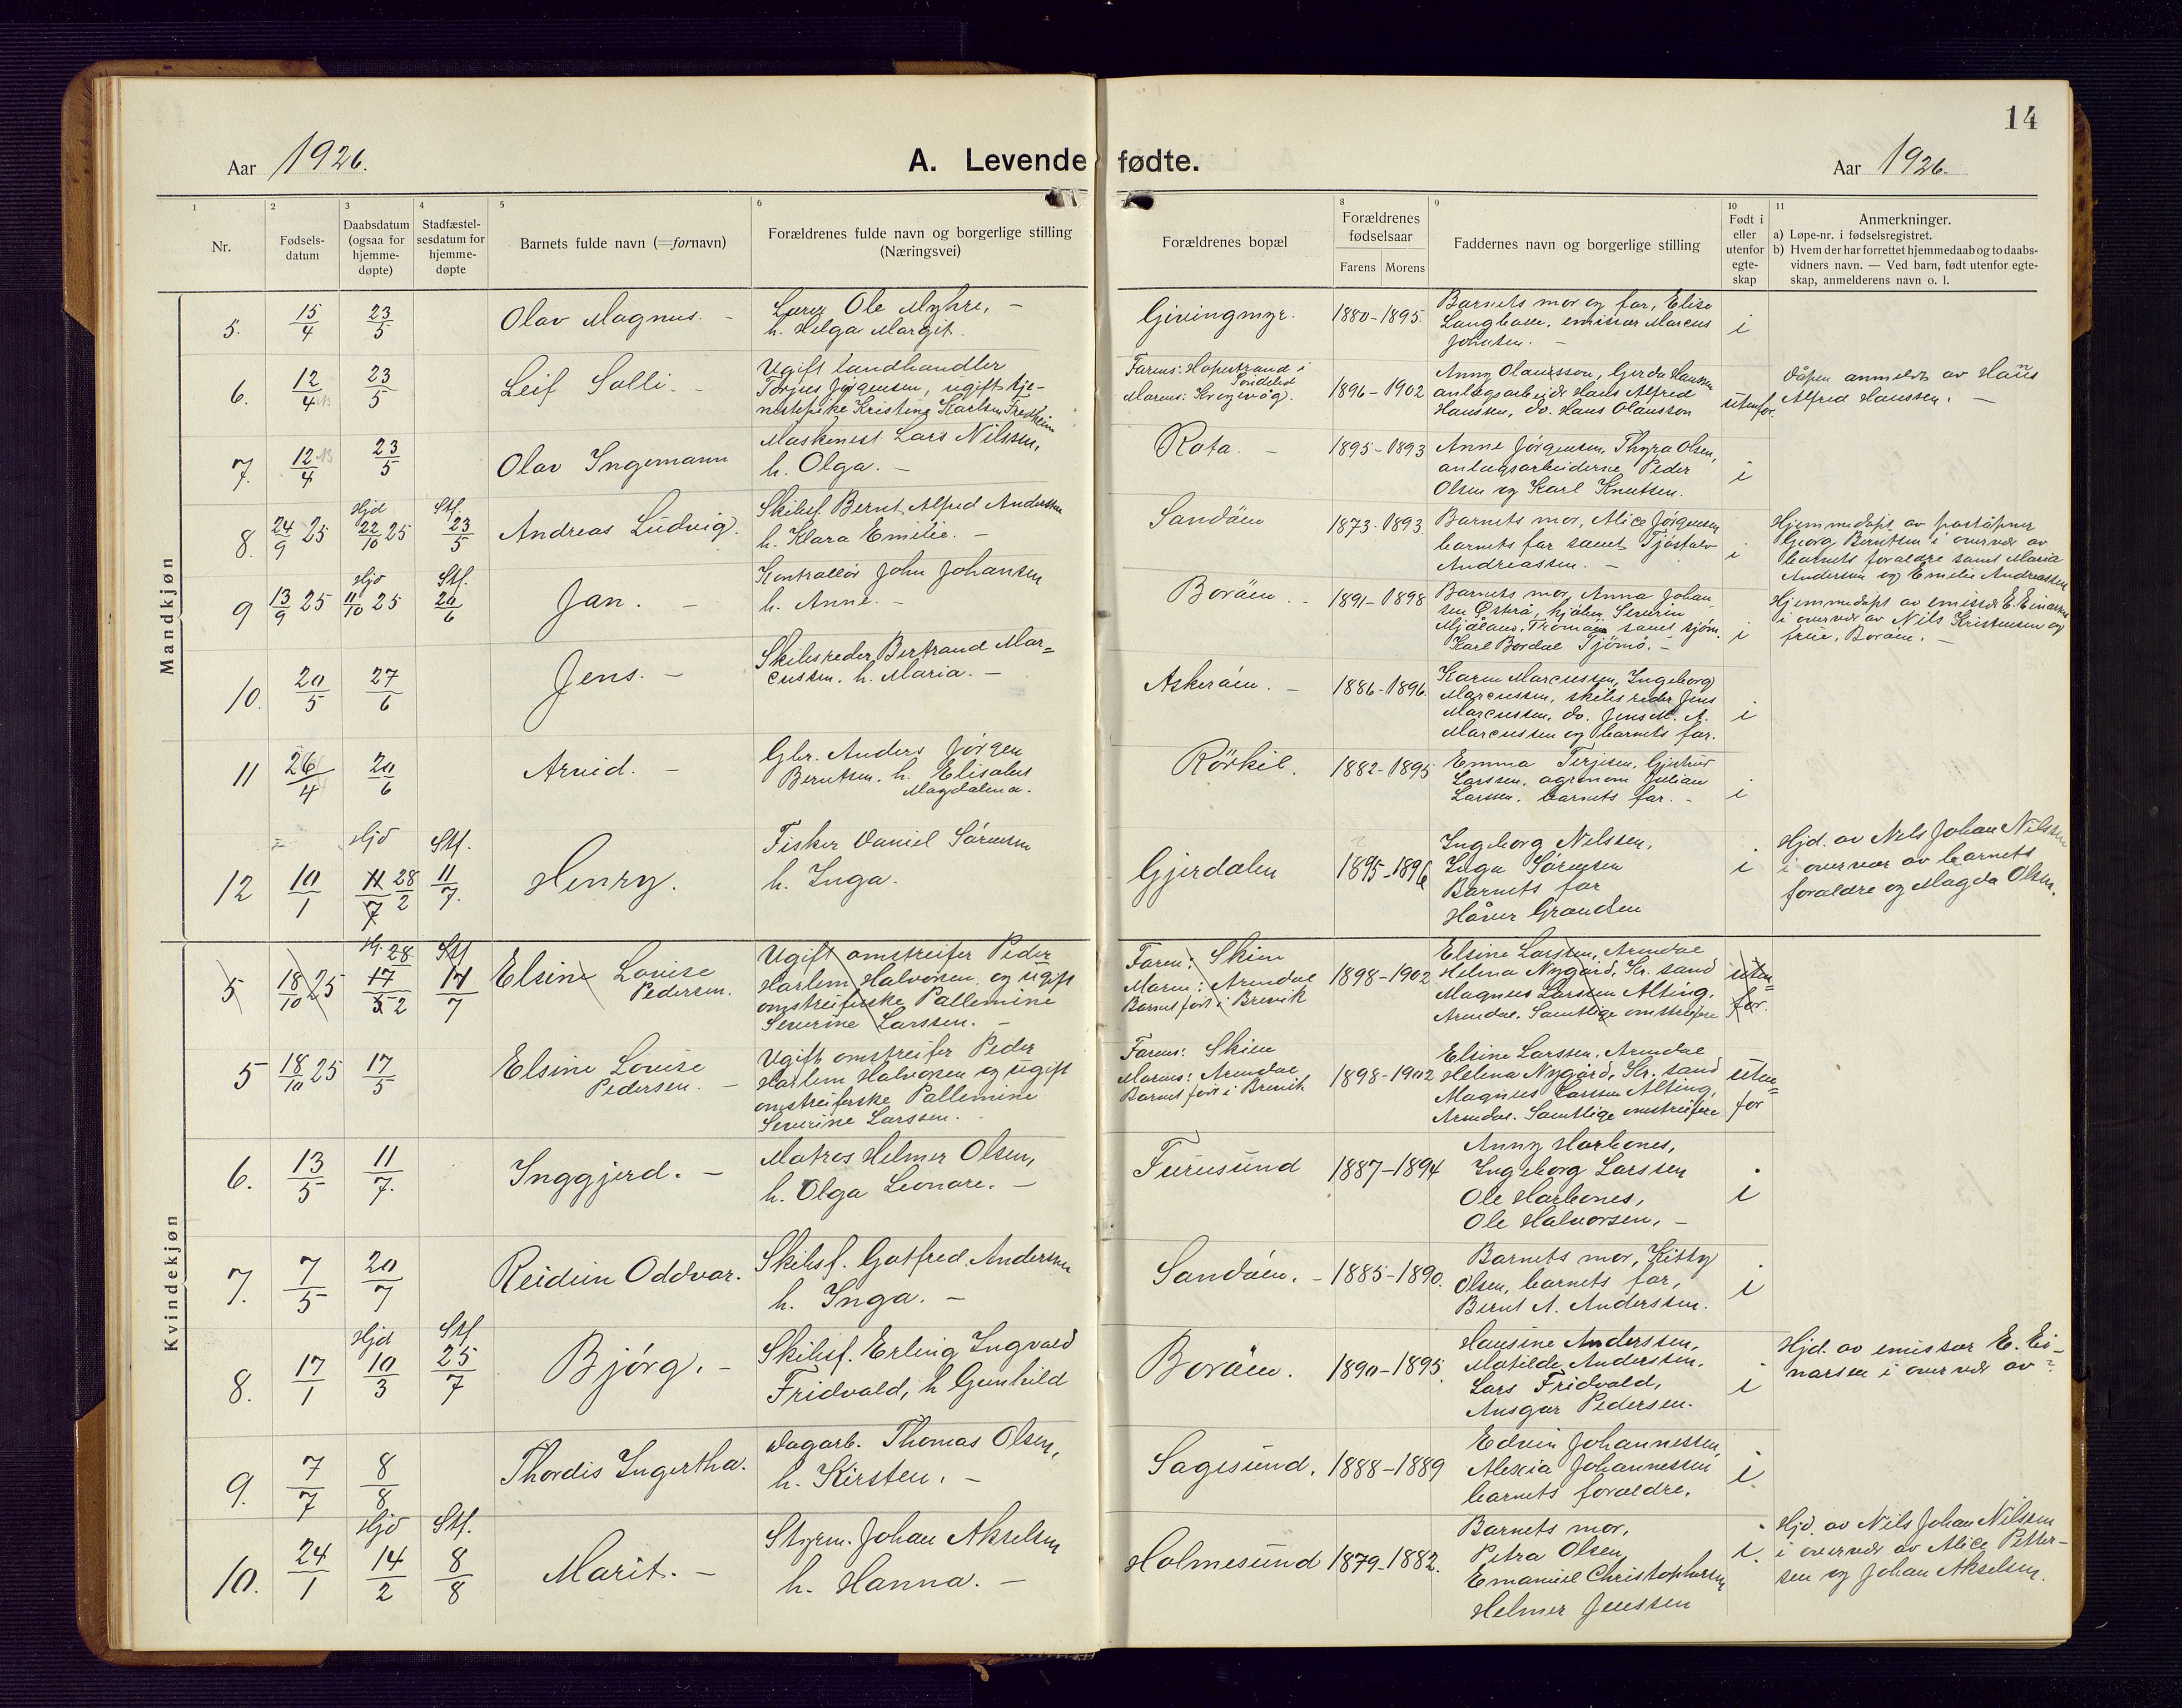 14
Aar 1926.
A. Levende fødte.
Aar 1926.
1
2
3
4
5
6
8
9
10
11
Nr.
Fødsels-
datum
Daabsdatum
(ogsaa for
hjemme-
døpte)
Stadfæstel-
sesdatum for
hjemme-
døpte
Barnets fulde navn (=fornavn)
Forældrenes fulde navn og borgerlige stilling
(Næringsvei)
Forældrenes bopæl
Forældrenes
fødselsaar
Farens Morens
Faddernes navn og borgerlige stilling
Født i
eller
utenfor
egte-
skap
Anmerkninger.
a) Løpe-nr. i fødselsregistret.
b) Hvem der har forrettet hjemmedaab og to daabs-
vidners navn. — Ved barn, født utenfor egte-
skap, anmelderens navn o. l.
Mandkjøn
5. 15/4 23/5 Olav Magnus. –
Ole Myhre, –
h. Helga Margit.
Gjevingmyr. 1880-1895.
Barnets mor og far, Elise
emissær Marcus
Johnsen. –
i
6. 12/4 23/5 Leif Solli. –
Ugift landhandler
Torjus Jørgensen, ugift tje-
nestepike Kristine Karlsen Fredheim
Farens: Hopestrand i
Søndeled
Morens: Krogevåg. 1896-1902
Anny Olausson, Gerda Hanssen
anlegsarbeider Hans Alfred
Hanssen, do. Hans Olausson
utenfor.
Dåpen anmeldt av Hans
Alfred Hanssen. –
7. 12/4 23/5 Olav Ingemann
Maskinist Lars Nilssen,
h. Olga. –
Rota. – 1895-1893
Anne Jørgensen, Thyra Olsen,
anlægsarbeiderne Peder
Olsen og Karl Knutsen.
i
8. 24/9 25 Hjd 22/10 25 Stf. 23/5 Andreas Ludvig.
Skibsf. Bernt Alfred Anderssen
h. Klara Emilie. –
Sandøen 1873-1893
Barnets mor, Alice Jørgensen
barnets far samt Tjøstolv
Andreassen. –
i
Hjemmedøpt av poståpner
Georg Berntsen i overvær av
barnets forældre samt Maria
Andersen og Emilie Andreassen
9 13/9 25 Hjd 11/10 25 Stf. 20/6 Jan. –
Kontrollør John Johansen
h. Anne. –
Borøen. – 1891-1898
Barnets mor, Anna Johan-
sen Østerå, Severin
Mjåland, Tromøen samt sjøm.
Karl Bordal Tjømø. –
i
Hjemmedøpt av emissær E. Einarsen
i overvær av Nils Kristensen og
frue, Borøen. –
10. 20/5 27/6 Jens. –
Skibsreder Bertrand Mar=
cussen. h. Maria. –
Askerøen. – 1886-1896.
Karen Marcussen, Ingeborg
Marcussen, skibsreder Jens
Marcussen, do. Jens M. A.
Marcussen og barnets far.
i
11 26/4 20/6 Arvid. –
Gbr. Anders Jørgen
Berntsen. h. Elisabet
Magdalena.
Rørkil. 1882-1895
Emma Terjesen,
Larssen, agronom Julian
Larssen, barnets far. –
i
12 10/1 Hjd 11/7 28/2 Stf. 11/7. Henry.
Fisker Daniel Sørensen
h. Inga.
Gjerdalen 1895-1896
Ingeborg Nelssen,
Inga Sørensen
Barnets far
Håver Grandsen
i
Hjd. av Nils Johan Nilssen
i overvær av barnets
forældre og Magda Olsen.
Kvindekjøn
5 18/10 25 H. 28 17/5 2 Stf 11/7 Elsine Lovise
Pedersen.
Ugift omstreifer Peder
Harlem Halvorsen og ugift
omstreiferske Pallemine
Severine Larssen. –
Farens: Skien
Morens: Arendal
Barnet født i Brevik 1898-1902
Elsine Larssen, Arendal
Helena Nygård, Kr. sand
Magnus Larssen Alting,
Arendal. Samtlige omstreifere
uten=
for.
5 18/10 25 17/5 Elsine Lovise
Pedersen. –
Ugift omstreifer Peder
Harlem Halvorsen og ugift
omstreiferske Pallemine
Severine Larssen. –
Farens: Skien
Morens: Arendal
Barnet født i Brevik 1898-1902
Elsine Larssen, Arendal
Helena Nygård, Kr. sand
Magnus Larssen Alting,
Arendal. Samtlige omstreifere
uten=
for
6. 13/5 11/7. Inggjerd. –
Matros Helmer Olsen,
h. Olga Leonore. –
Furusund 1887-1894
Anny Harbones,
Ingeborg Larssen
Ole Harbones,
Ole Halvorsen, –
i
7. 7/5 20/7 Reidun Oddvar.
Skibsf. Gotfred Anderssen
h. Inga. –
Sandøen. – 1885-1890.
Barnets mor, Kitty
Olsen, barnets far,
Bernt A. Anderssen.
i
8. 17/1 Hjd 10/3 Stf 25/7 Bjørg. –
Skibsf. Erling Ingvald
Fridvald, h Gunhild
Borøen. 1890-1895.
Hansine Anderssen,
Matilde Anderssen.
Lars Fridvald,
Ansgar Pedersen.
i
Hjd. av emissær E. Ei-
narsen i overvær av ?
9. 7/7 8/8 Thordis Ingertha.
Dagarb. Thomas Olsen,
h. Kirsten. –
Sagesund. 1888-1889
Edvin Johannessen,
Alexia Johannessen
barnets forældre.
i
10. 24/1 Hjd 14/2 Stf. 8/8 Marit. –
Styrm. Johan Akselsen
h. Hanna. –
Holmesund 1879-1882.
Barnets mor,
Petra Olsen
Emanuel Christophersen
Helmer Jenssen
i.
Hjd. av Nils Johan Nilssen
i overvær av Alice Petter-
sen og Johan Akselsen.